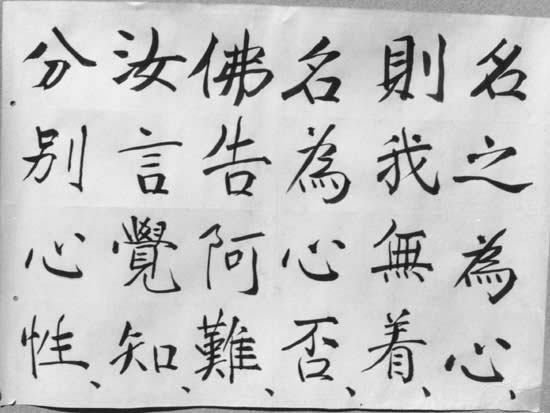 名之為心、
則我無着、
名為心否、
佛告阿難、
汝言覺知、
分別心性、